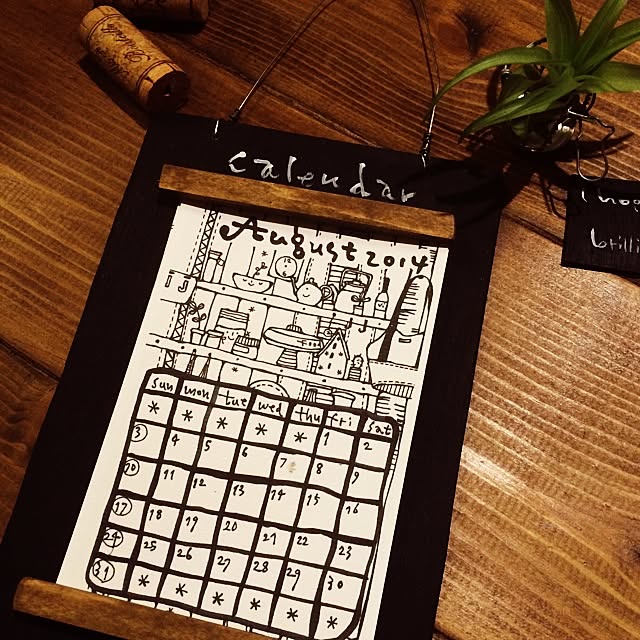 calendar
August 2014
sun mon tue wed thu fri sat
* * * * * 1 2
3 4 5 6 7 8 9
10 11 12 13 14 15 16
17 18 19 20 21 22 23
24 25 26 27 28 29 30
31 * * * * * *